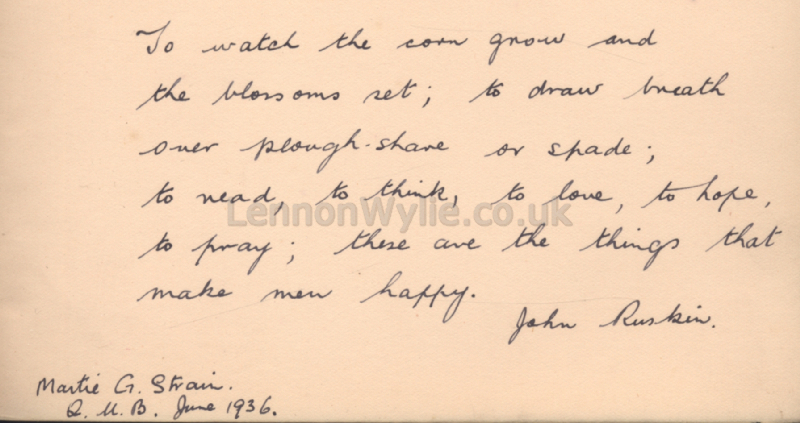 To watch the corn grow and
the blossoms set; to draw breath
over plough-share or spade;
to read, to think, to love, to hope,
LennonWylie.co.uk
to pray; these are the things that
make men happy.
John Ruskin.
Martie G. Strain.
Q. U. B. June 1936.